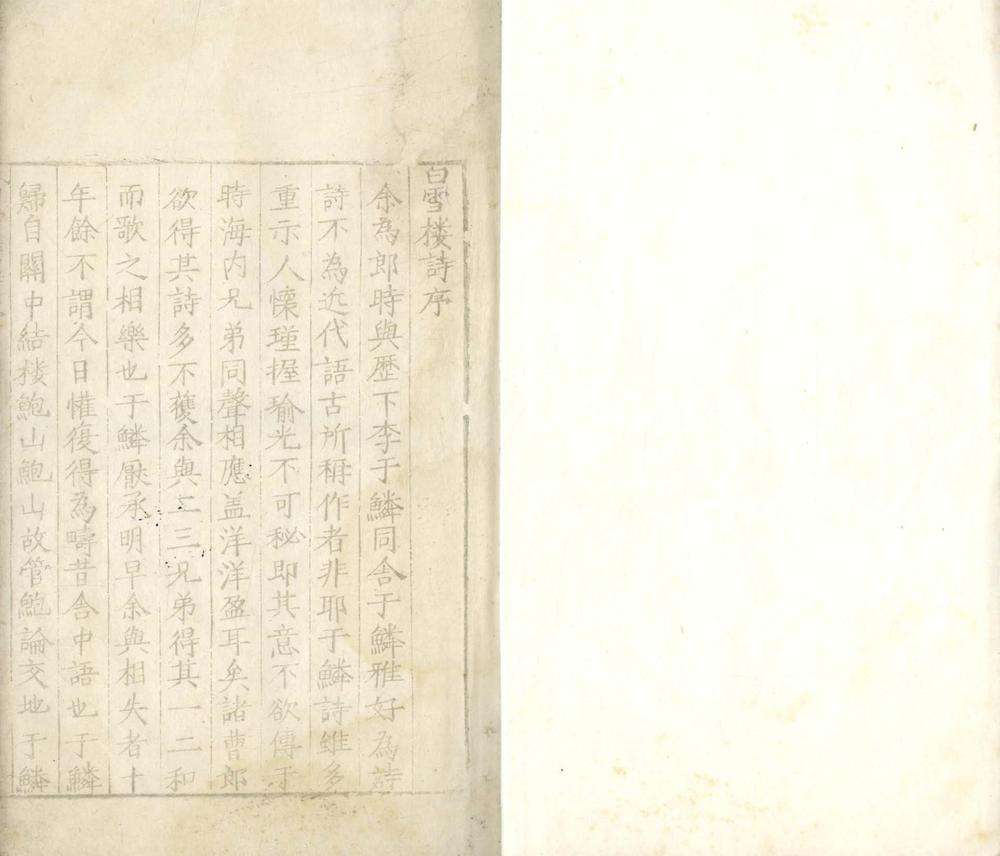 白雪楼詩序
余為郎時與歷下李于鱗同舍于鱗雅好為詩
詩不為近代語古所稱作者非耶于鱗詩雖多
重示人懷瑾握瑜光不可秘即其意不欲傳于
時海内兄弟同聲相應盖洋洋盈耳矣諸曹郎
欲得其詩多不獲余與二三兄弟得其一二和
而歌之相樂也于鱗厭承明早余與相失者十
年餘不謂今日惟復得為疇昔舍中語也于鱗
歸自關中結楼鮑山鮑山故管鮑論交地于鱗